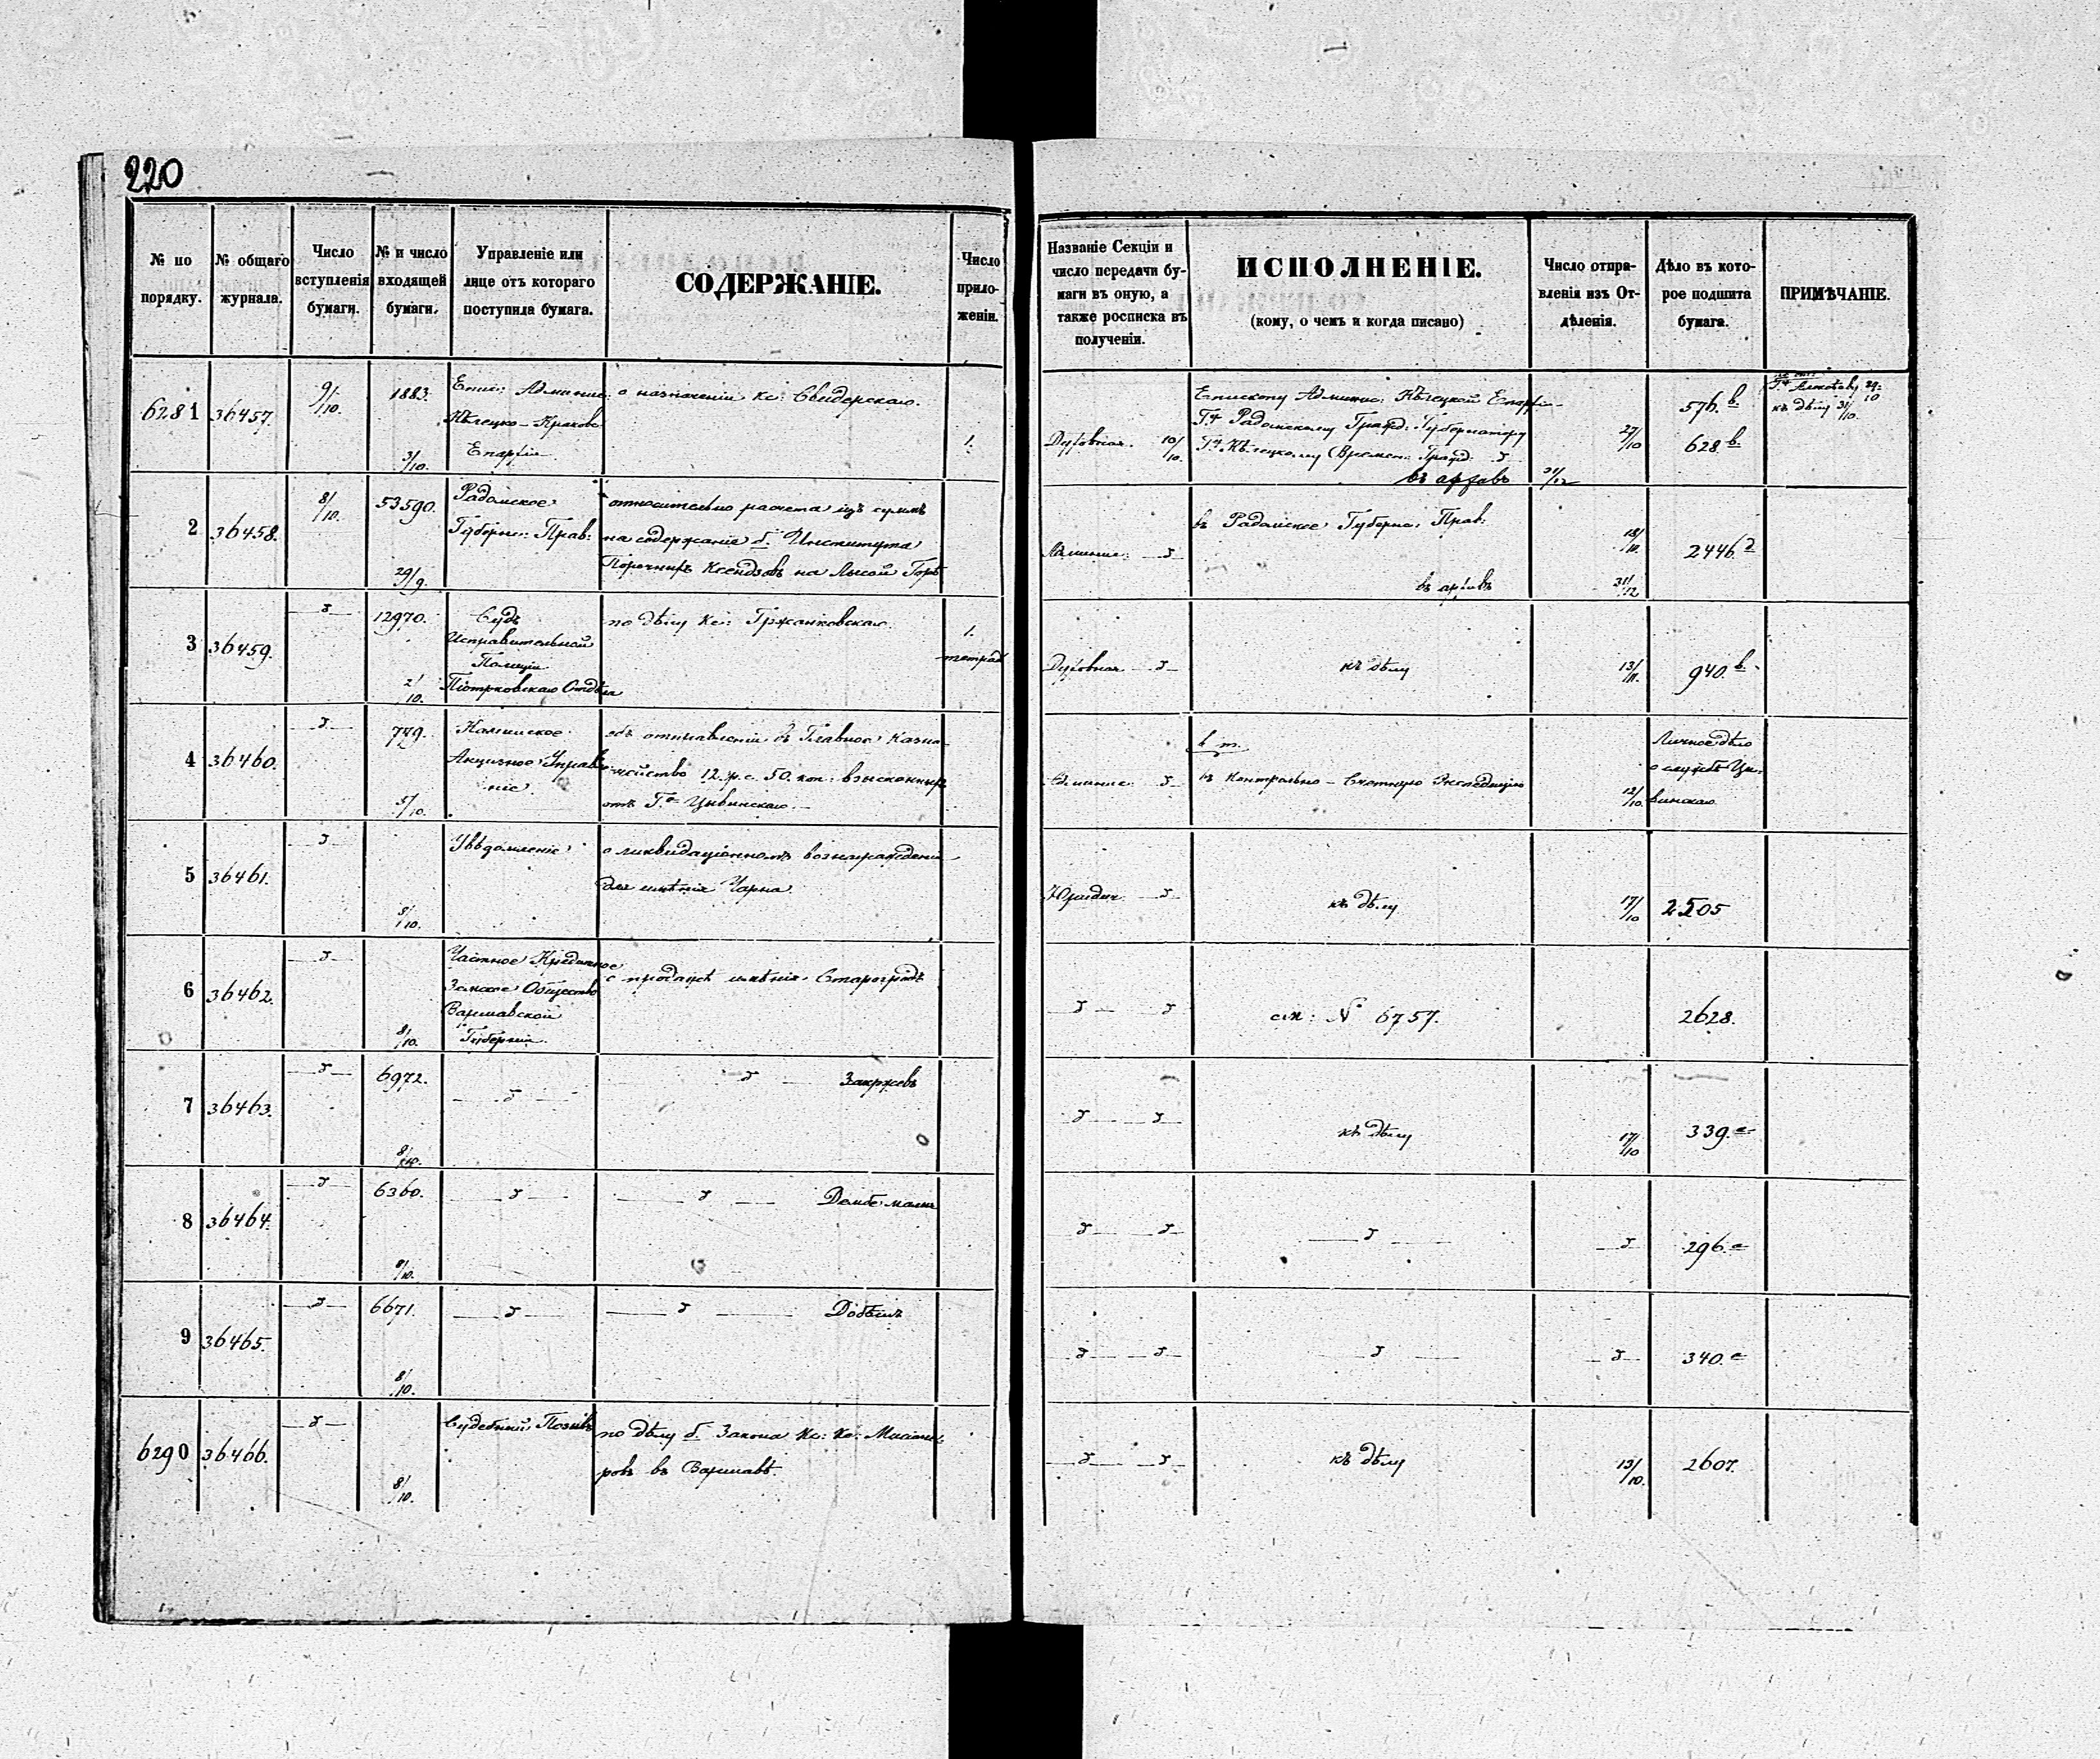 220
№ по порядку.
№ общаго журнала.
Число вступленія бумаги.
№ и число входящей бумаги.
Управленіе или лице отъ котораго поступила бумага.
СОДЕРЖАНІЕ.
Число приложеніи.
Названіе Секціи и число передачи бумаги въ оную, а также росписка въ полученіи.
ИСПОЛНЕНІЕ.
(кому, о чемъ и когда писано)
Число отправленія изъ Отдѣленія.
Дѣло въ которое подшита бумага.
ПРИМѢЧАНІЕ.
6281 36457. 9/10. 1883. 3/10.
Епис: Админис:
Кѣлецко-Краковс
Епархіи
о назначеніи Кс: Свидерскаго.
1.
Духовная. 10/10.
Епископу Админис: Кѣлецкой Епархіи
Г.у Радомскому Гражд: Губернатору
Г.у Кѣлецкому (Времен: Гражд:
въ архивъ
27/10
31/12
576.в
628.в
къ дѣлу 31/10.
2 36458. 8/10. 53590. 29/9.
Радомское
Губернс: Прав:
относительно расчета изъ суммъ
на содержаніе б. Института
Порочныхъ Ксендзовъ на Лысой Горѣ
въ Радомское Губернс: Прав:
въ архивъ
18/10.
31/12
2446.
3 36459. 12970. 2/10.
Судъ
Исправительной
Полиціи
Піотрковскаго Отдѣла
по дѣлу Кс: Гржанковскаго.
1.
тетрад
Духовная
къ дѣлу
13/11.
940.в.
4 36460. 779. 5/10.
Калишское
Акцизное Управле-
ніе.
объ отправленіи въ Главное Казна-
чейство 12. р. с. 50. коп: взысканныхъ
отъ Г. Цывинскаго.
въ Контрольно-Счетную Экспедицію
12/10.
Личное дѣло
о службѣ Цы-
винскаго
5 36461. 8/10.
Увѣдомленіе
о ликвидаціонномъ вознагражденіи
для имѣнія Чарна.
Юридич:
къ дѣлу
17/10
2505
6 36462. 8/10.
Частное Кредитное
Земское Общество
Варшавской
Губерніи.
о продажѣ имѣнія Старогродъ
см: № 6757.
2628.
7 36463. 6972. 8/10.
Закржевъ
къ дѣлу
17/10
339.
8 36464. 6360. 8/10.
296.
9 36465. 6671. 8/10.
340.
6290 36466. 8/10.
Судебный Позывъ
по дѣлу б. Закона Кс: Кс: Миссіоне-
ровъ въ Варшавѣ.
къ дѣлу
13/10.
2607.